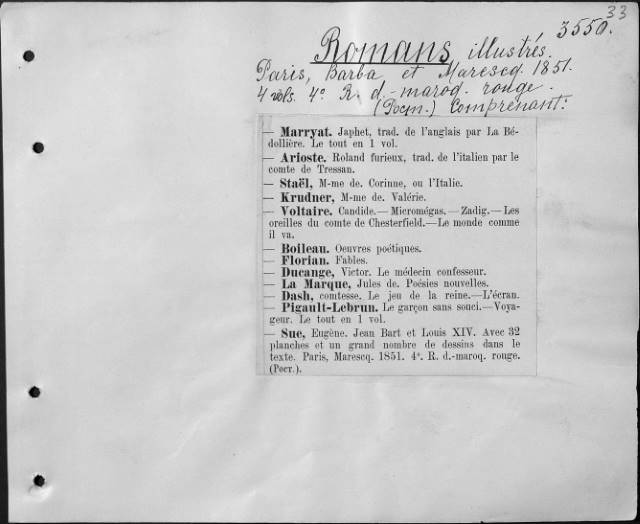 33
3550.
Romans illustrés.
Paris, Barba et Marescq. 1851.
4 vols. 4º R. d.-maroq. rouge.
(Росm.) Comprenant:
— Marryat. Japhet, trad. de l'anglais par La Bé-
dollière. Le tout en 1 vol.
— Arioste. Roland furieux, trad. de l'italien par le
comte de Tressan.
— Staël, M-me de. Corinne, ou l'Italie.
— Krudner, M-me de. Valérie.
— Voltaire. Candide.—Micromégas.—Zadig.—Les
oreilles du comte de Chesterfield.—Le monde comme
il va.
— Boileau. Oeuvres poétiques.
— Florian. Fables.
— Ducange, Victor. Le médecin confesseur.
— La Marque, Jules de. Poésies nouvelles.
— Dash, comtesse. Le jeu de la reine.—L'écran.
— Pigault-Lebrun. Le garçon sans souci.—Voya-
geur. Le tout en 1 vol.
— Sue, Eugène. Jean Bart et Louis XIV. Avec 32
planches et un grand nombre de dessins dans le
texte. Paris, Marescq. 1851. 4º. R. d.-maroq. rouge.
(Рост.).